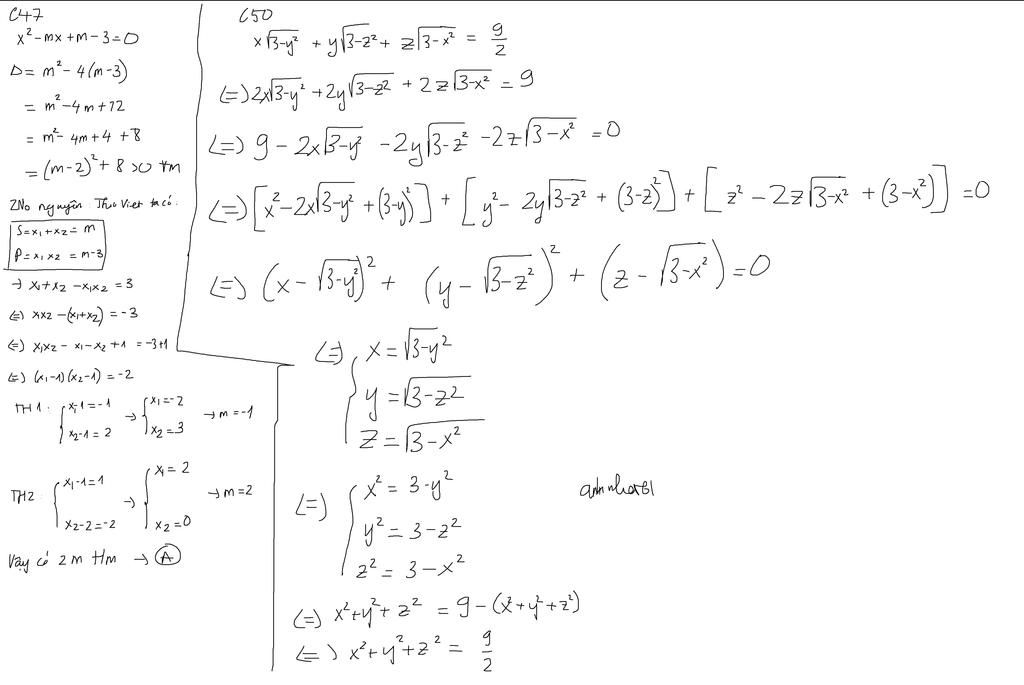 C47
x² - mx + m - 3 = 0
Δ = m² - 4(m-3)
= m² - 4m + 12
= m² - 4m + 4 + 8
= (m-2)² + 8 > 0 ∀m
2No nguyên. Theo Viet ta có:
S = x₁ + x₂ = m
P = x₁x₂ = m-3
→ x₁ + x₂ - x₁x₂ = 3
(=) x₁x₂ - (x₁+x₂) = -3
(=) x₁x₂ - x₁ - x₂ + 1 = -3+1
(=) (x₁-1)(x₂-1) = -2
TH1: { x₁-1 = -1 → { x₁ = -2 → m = -1
x₂-1 = 2 x₂ = 3
TH2: { x₁-1 = 1 → { x₁ = 2 → m = 2
x₂-2 = -2 x₂ = 0
Vậy có 2 m tm → A
C50
x√(3-y²) + y√(3-z²) + z√(3-x²) = 9/2
(=) 2x√(3-y²) + 2y√(3-z²) + 2z√(3-x²) = 9
(=) 9 - 2x√(3-y²) - 2y√(3-z²) - 2z√(3-x²) = 0
(=) [x² - 2x√(3-y²) + (3-y)²] + [y² - 2y√(3-z²) + (3-z)²] + [z² - 2z√(3-x²) + (3-x²)] = 0
(=) (x - √(3-y²))² + (y - √(3-z²))² + (z - √(3-x²)) = 0
(=) { x = √(3-y²)
y = √(3-z²)
z = √(3-x²)
(=) { x² = 3-y²
y² = 3-z²
z² = 3-x²
(=) x² + y² + z² = 9 - (x² + y² + z²)
(=) x² + y² + z² = 9/2